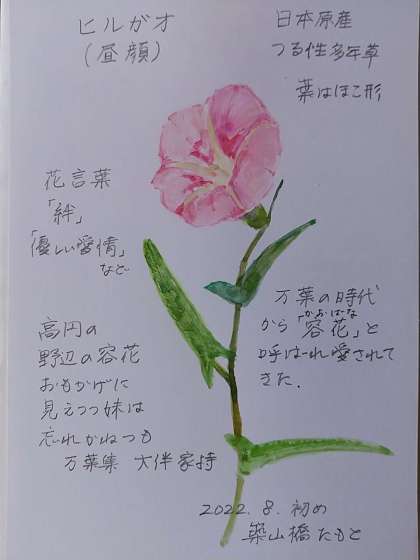 ヒルガオ
(昼顔)
日本原産
つる性多年草
葉はほこ形
花言葉
「絆」
「優しい愛情」
など
万葉の時代
から「容花」と
かおばな
呼ばれ愛されて
きた.
高円の
野辺の容花
おもかげに
見えつつ妹は
忘れかねつも
万葉集 大伴家持
2022.8.初め
築山橋たもと